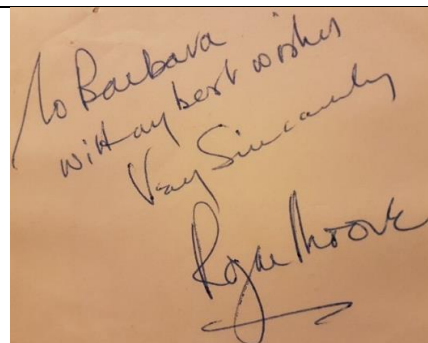 To Barbara
with my best wishes
Very Sincerely
Roger Moore